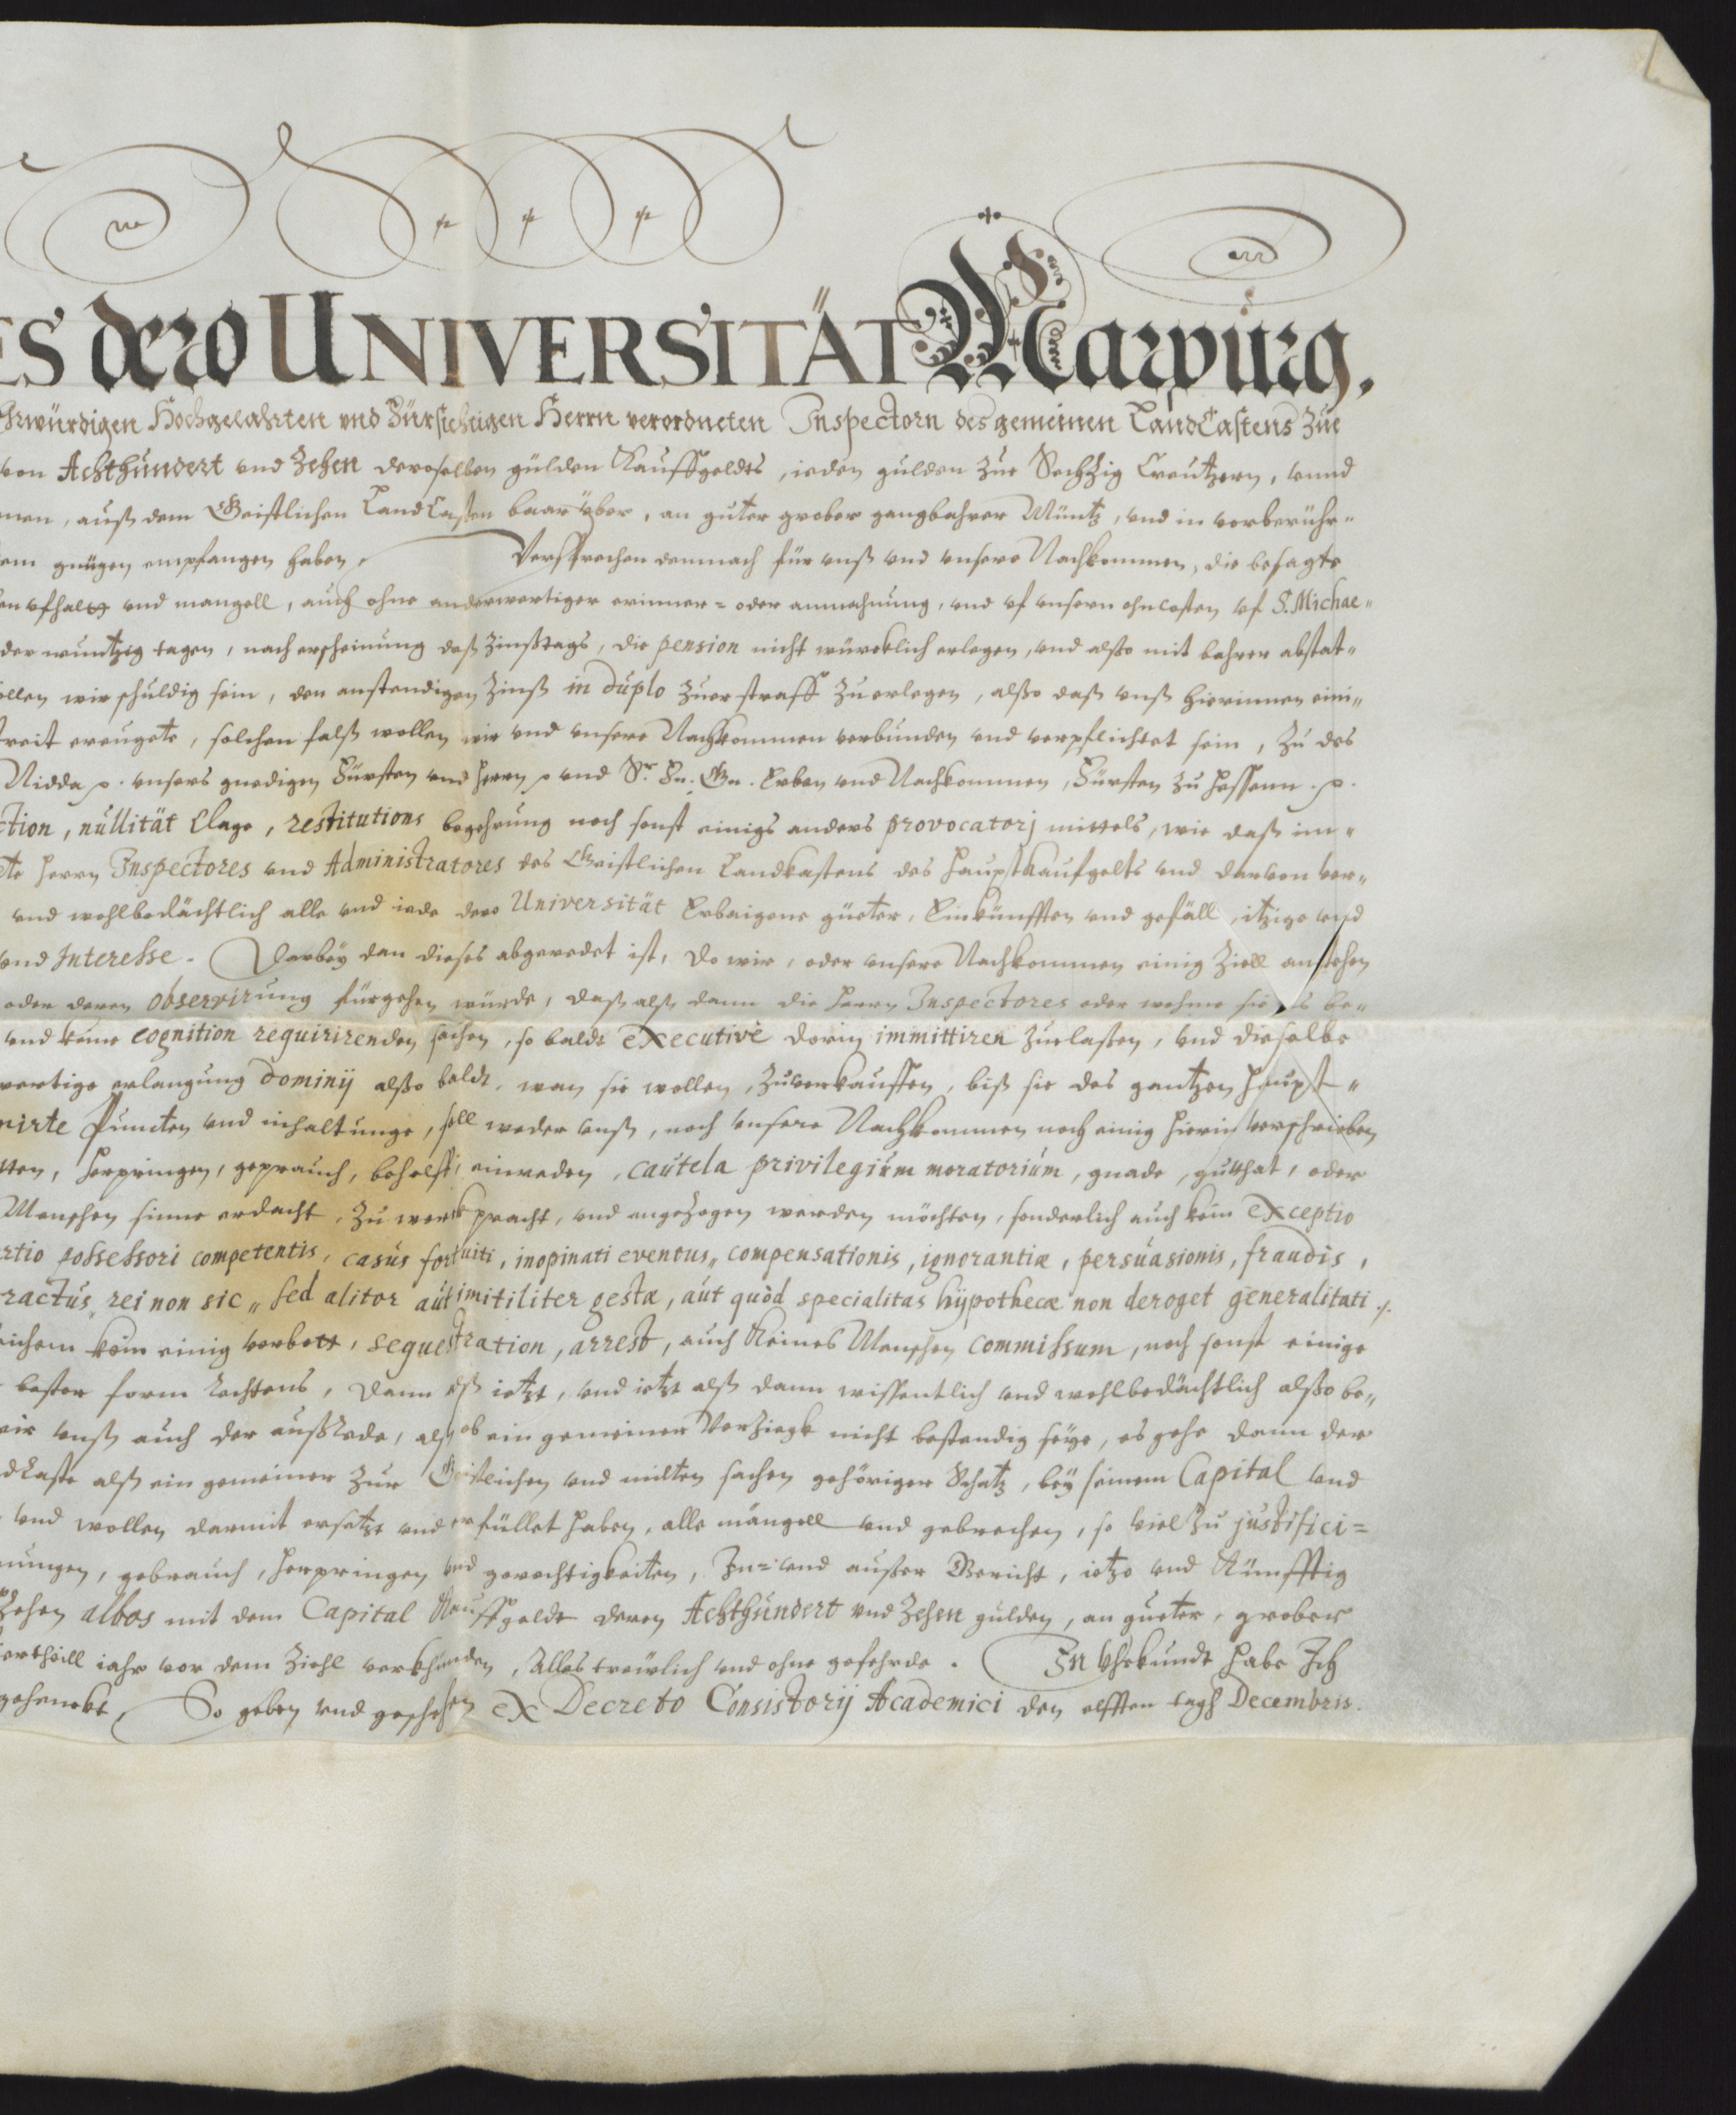 ES dero UNIVERSITÄT Marpurg,
Ehrwürdigen Hochgelahrten vnd Fürsichtigen Herrn verordneten Inspectorn des gemeinen LandCastens Zue
von Achthundert vnd Zehen deroselben gülden Kauffgeldts, ieden gulden Zue Sechzig Creutzern, vnnd
men, auß dem Geistlichen LandCasten baar über, an guter grober gangbahrer Müntz, vnd in vorberühr„
em gnügen empfangen haben, Versprechen demnach für vnß vnd vnsere Nachkommen, die besagte
en vfhaltt vnd mangell, auch ohne anderwertiger erinner= oder anmahnung, vnd vf vnsern ohncosten vf S. Michae„
der wentzig tagen, nach erscheinung deß Zinßtags, die pension nicht würcklich erlegen, vnd alßo mit bahrer abstat„
ollen wir schuldig sein, den anstendigen Zinß in duplo Zuer straff Zu erlegen, alßo daß vnß hierinnen eini„
treit ereugete, solchen falß wollen wir vnd vnsere Nachkommen verbunden vnd verpflichtet sein, Zu des
Nidda p. vnsers gnedigen Fürsten vnd Herrn p vnd Sr. Fn. Gn. Erben vnd Nachkommen, Fürsten Zu Hessenn p.
ction, nullität Clage, restitutions begehrung noch sonst einigs anders provocatorj mittels, wie daß im„
ete Herrn Inspectores vnd Administratores des Geistlichen Landkastens des Hauptkaufgelts vnd darvon ver„
vnd wohlbedächtlich alle vnd iede dero Universität Erbeigene güeter, Einkünfften vnd gefäll, itzige vnd
vnd Interesse. Darbey dan dieses abgeredet ist, Do wir, oder vnsere Nachkommen einig Ziell anstehen
oder deren observirung fürgehen würde, daß alß dann die Herrn Inspectores oder wehme sie es be„
vnd keine cognition requirirenden sachen, so balde executivè dorin immittiren Zuelaßen, vnd dieselbe
wertige erlangung dominij alßo baldt, wan sie wollen, Zuverkauffen, biß sie des gantzen Haupt„
nirte Puncten vnd inhaltunge, soll weder vnß, noch vnsere Nachkommen noch einig hierin verschrieben
tten, herpringen, geprauch, behelff, einreden, cautela privilegium moratorium, gnade, gutthat, oder
Menschen sinne erdacht, Zu werck pracht, vnd angezogen werden möchten, sonderlich auch kein exceptio
ertio possessori competentis, casus fortuiti, inopinati eventus„ compensationis, ignorantiæ, persuasionis, fraudis,
ractus, rei non sic„ sed aliter aut imitiliter gestæ, aut quòd specialitas hypothecæ non deroget generalitati p.
eichem kein einig verbott, sequestration, arrest, auch Keines Menschen commissum, noch sonst einige
bester form Rechtens, Dann alß ietzt, vnd ietzt alß dann wissentlich vnd wohlbedächtlich alßo be„
wir vnß auch der außrede, alß ob ein gemeiner Verziegk nicht bestendig seye, es gehe dann der
dkaste alß ein gemeiner Zur Geistlichen vnd milten sachen gehöriger Schatz, bey seinem Capital vnd
vnd wollen darmit ersetzt vnd erfüllet haben, alle mängell vnd gebrechen, so viel Zu justifici=
nungen, gebrauch, herpringen vnd gerechtigkeiten, In= vnd außer Gericht, ietzo vnd Künfftig
Zehen albos mit dem Capital Kauffgeldt deren Achthundert vnd Zehen gulden, an gueter, grober
ierthoill iahr vor dem Ziehl verkhünden, Alles trewlich vnd ohne gefehrde. In Vhrkundt habe Ich
gehenckt, So geben vnd geschehen ex Decreto Consistorij Academici den elfften tagh Decembris.